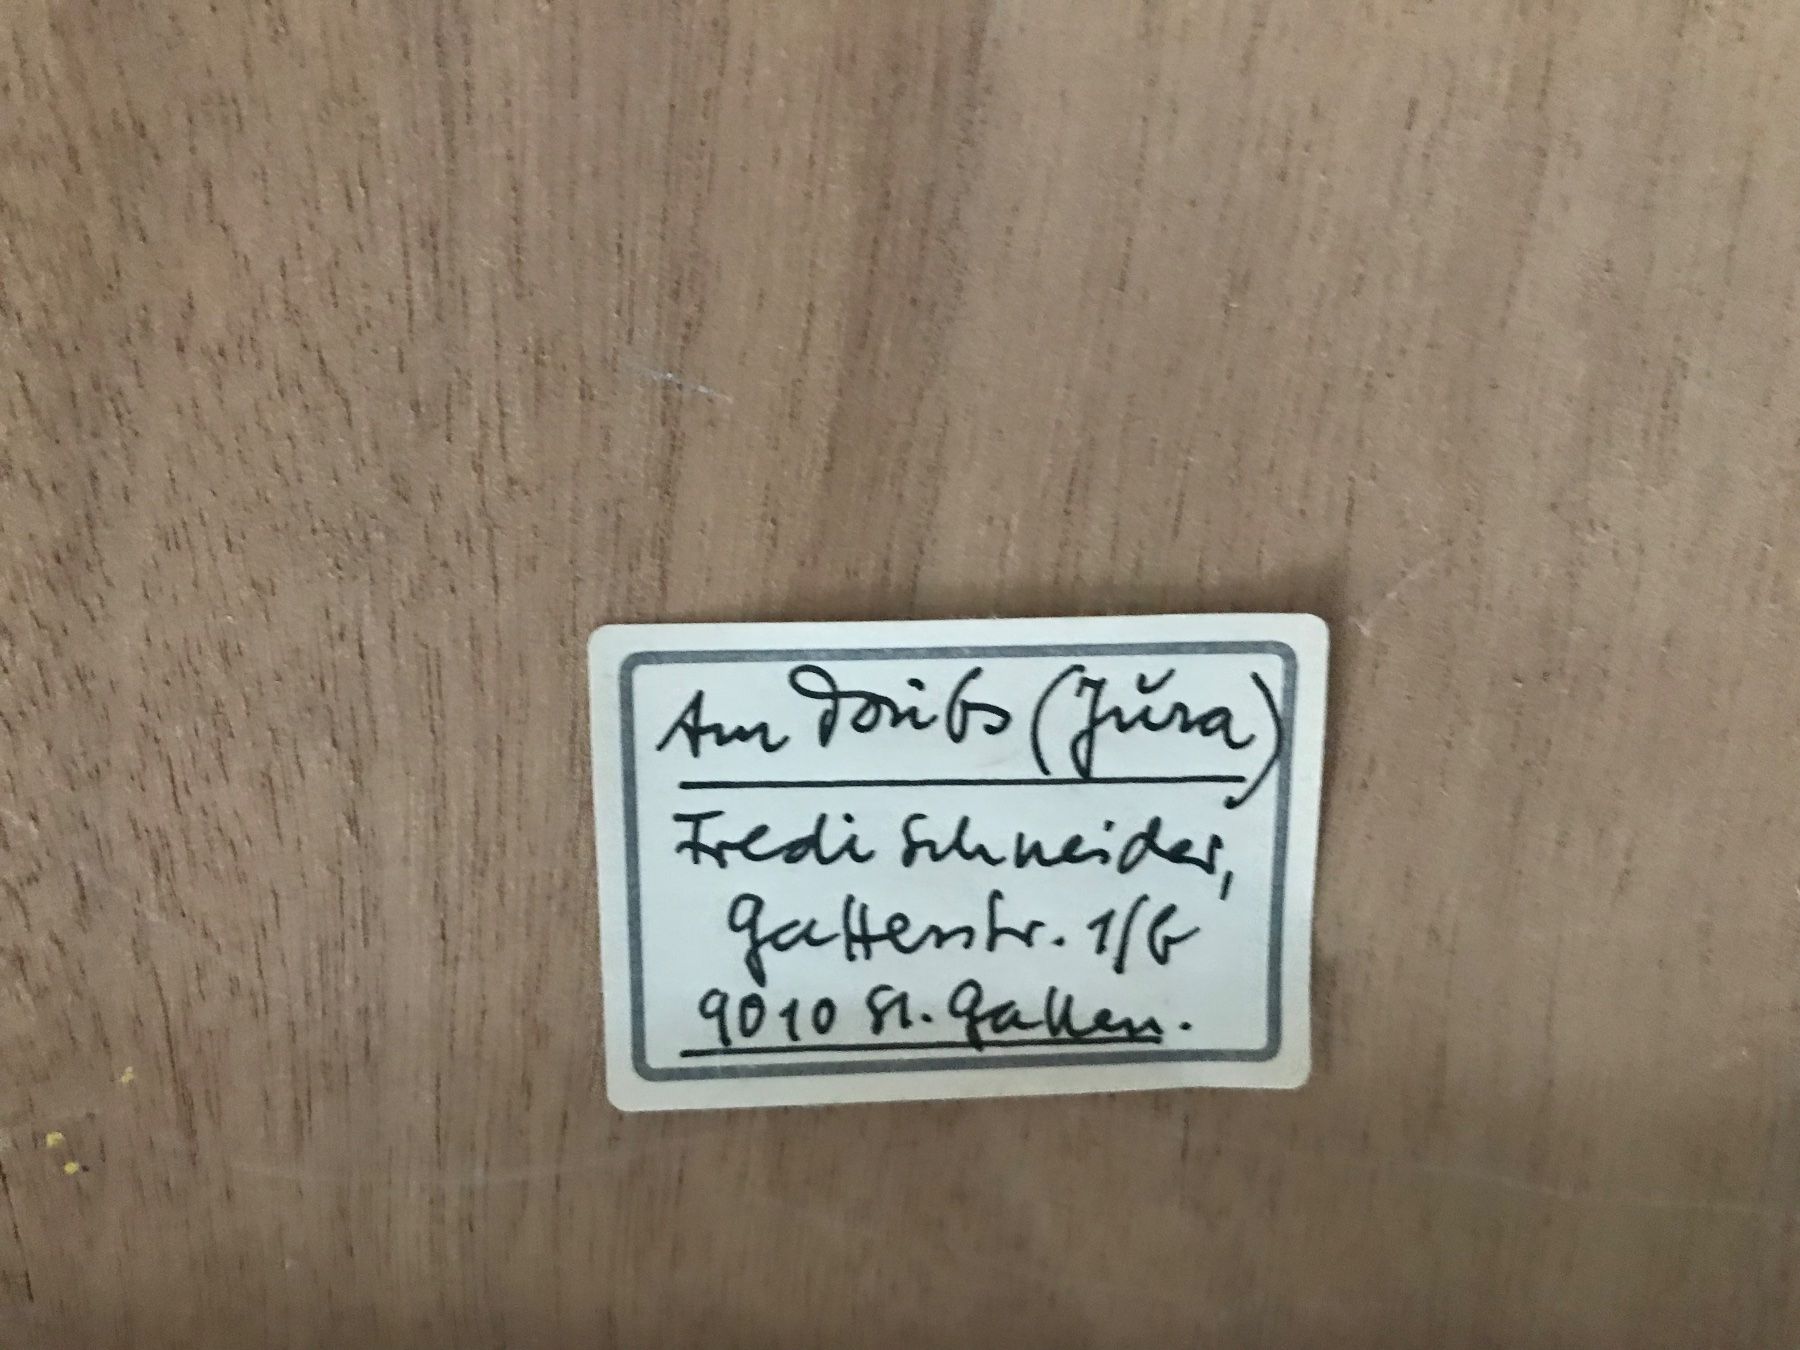 Am Doubs (Jura)
Fredi Schneider,
Gatterstr. 1/b
9010 St. Gallen.